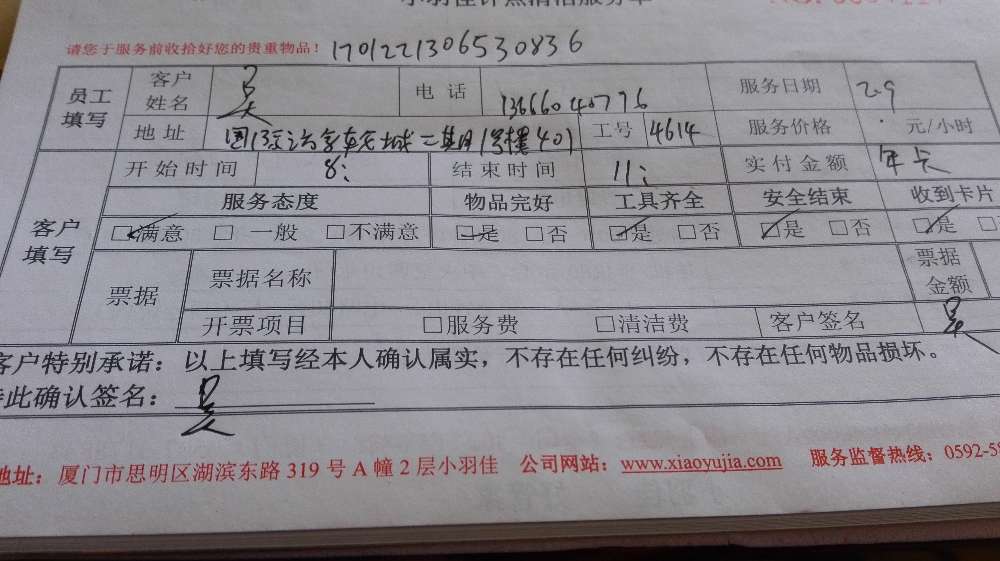 小羽佳计点清洁服务单
请您于服务前收拾好您的贵重物品！ 170122130653083６
员工填写 客户姓名 吴 电话 13666040776 服务日期 2.9
地址 二期1号楼401 工号 4614 服务价格 元/小时
开始时间 8: 结束时间 11: 实付金额 年卡
客户填写 服务态度 物品完好 工具齐全 安全结束 收到卡片
☑满意 □一般 □不满意 ☑是 □否 ☑是 □否 ☑是 □否 ☑是 □
票据 票据名称 票据金额
开票项目 □服务费 □清洁费 客户签名 吴
客户特别承诺：以上填写经本人确认属实，不存在任何纠纷，不存在任何物品损坏。
此确认签名： 吴
地址：厦门市思明区湖滨东路 319 号 A 幢 2 层小羽佳 公司网站：www.xiaoyujia.com 服务监督热线：0592-58